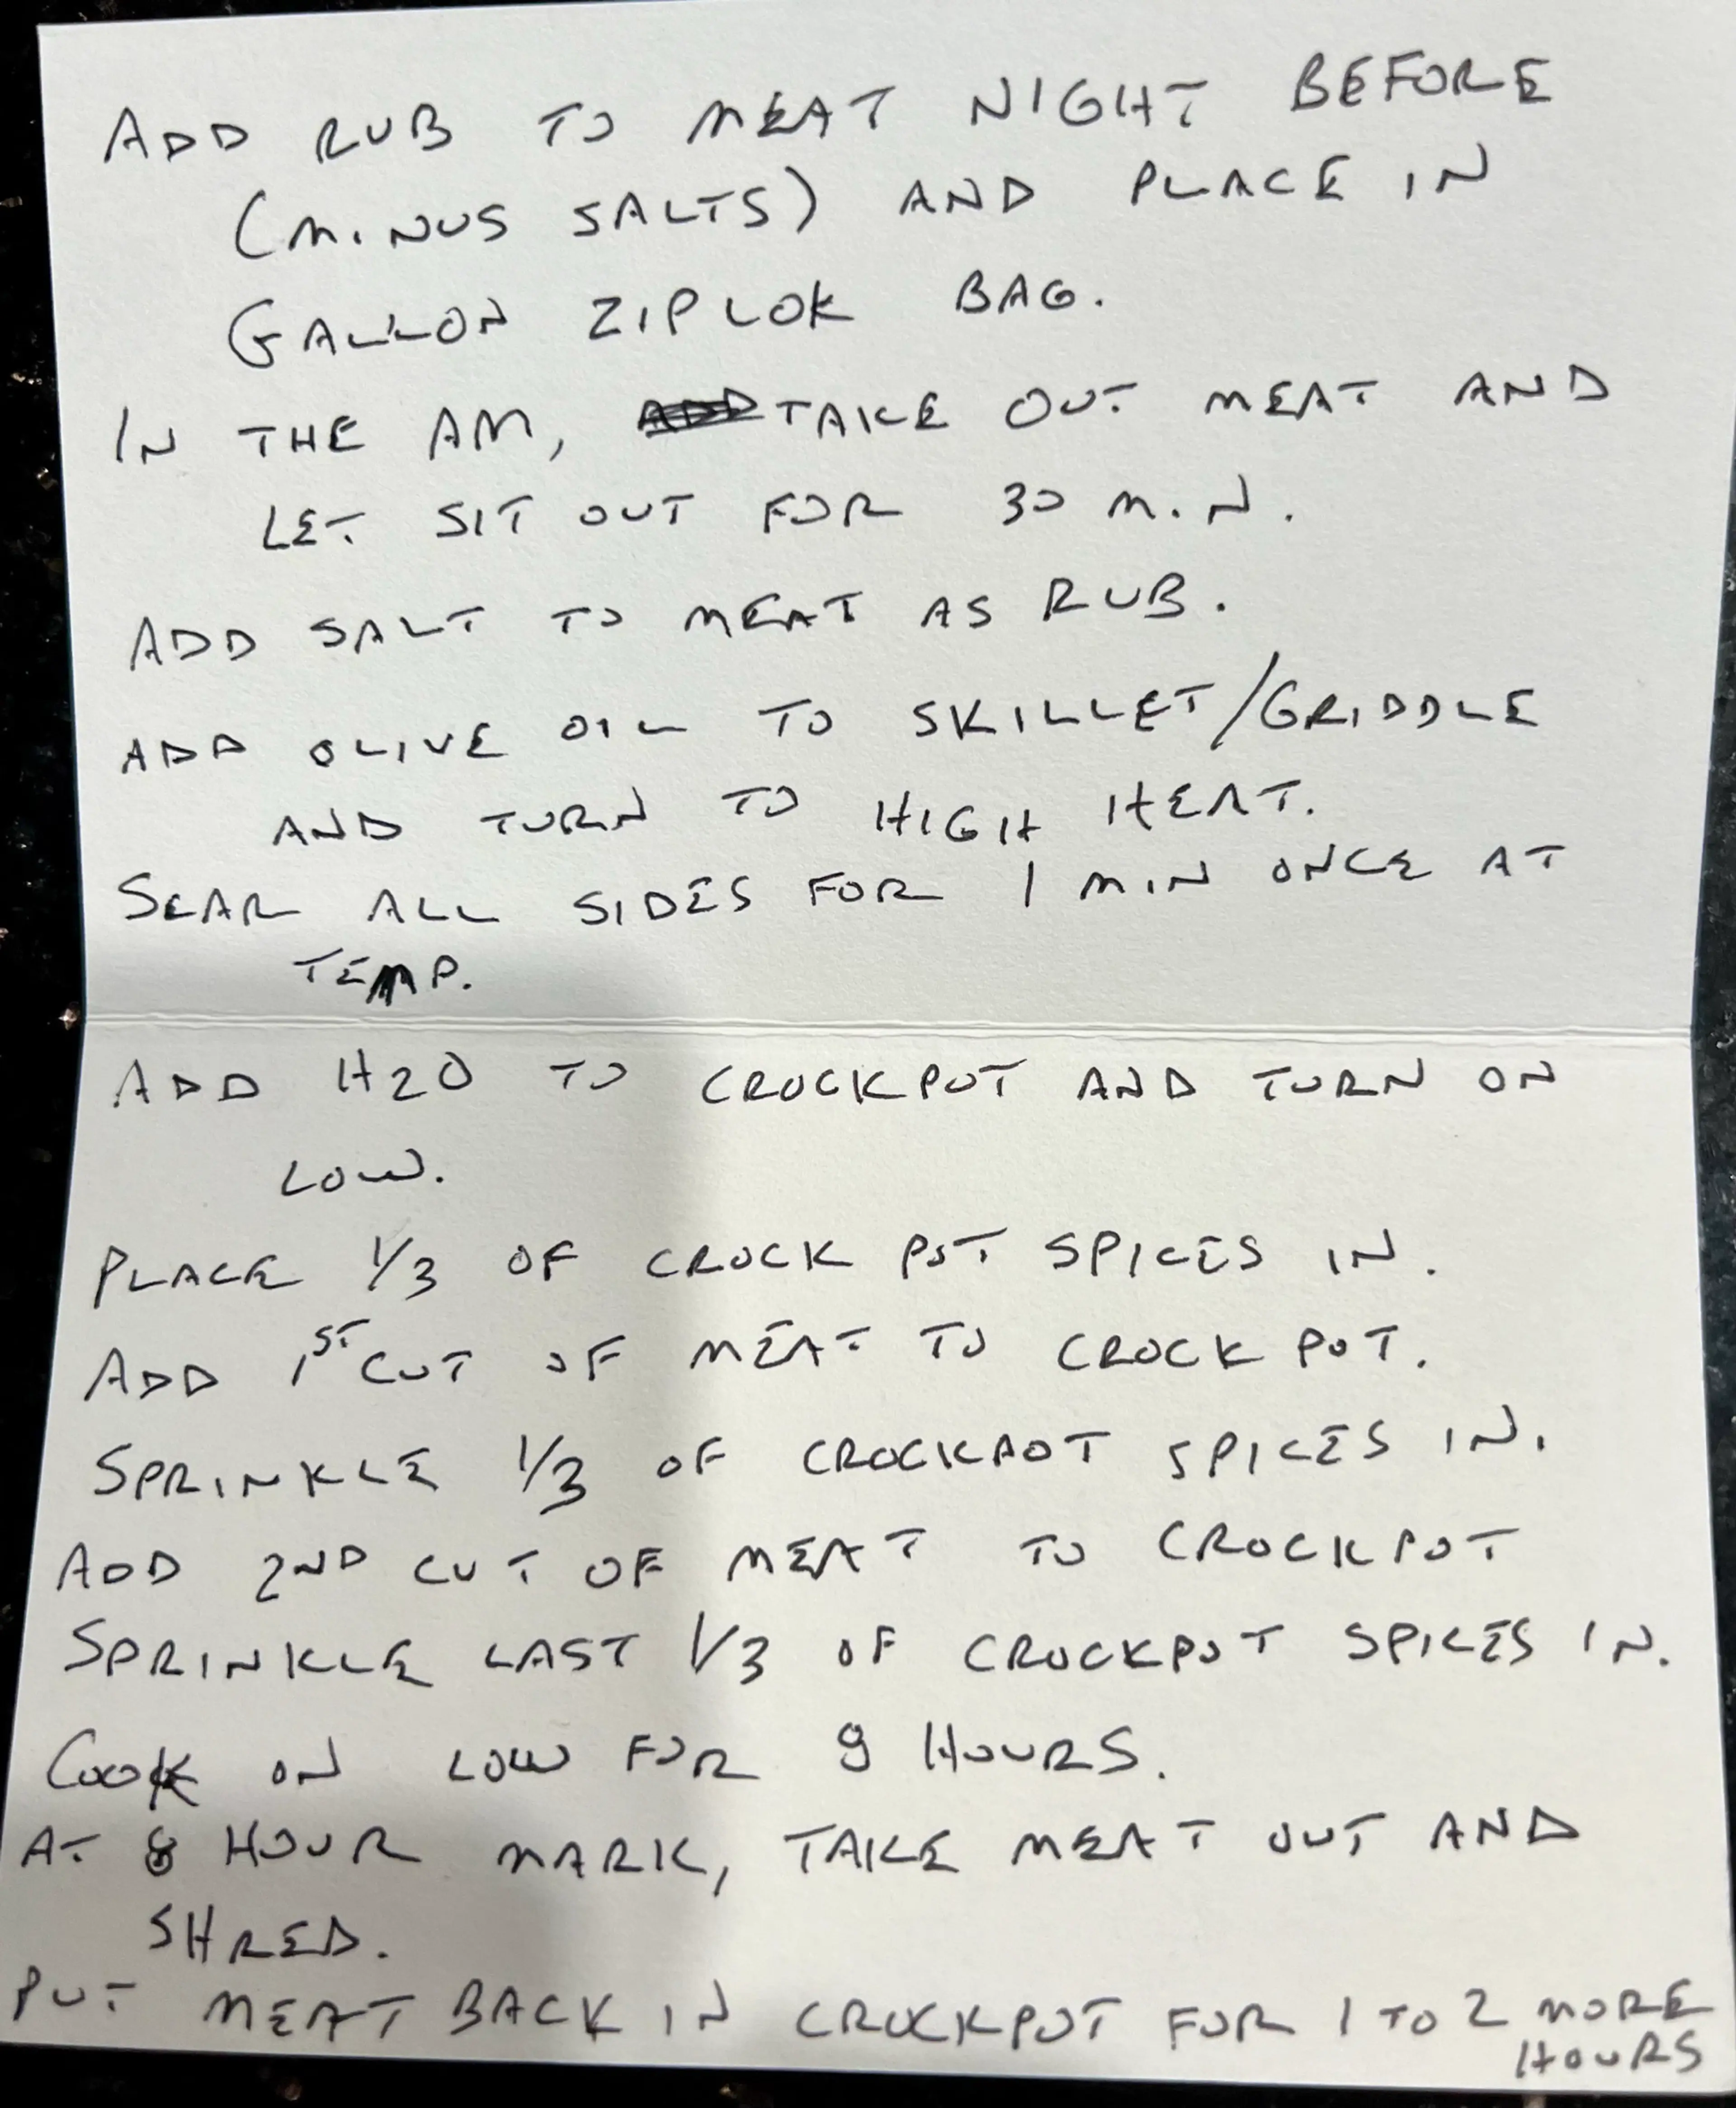 ADD RUB TO MEAT NIGHT BEFORE
(MINUS SALTS) AND PLACE IN
GALLON ZIPLOK BAG.
IN THE AM, TAKE OUT MEAT AND
LET SIT OUT FOR 30 MIN.
ADD SALT TO MEAT AS RUB.
ADD OLIVE OIL TO SKILLET/GRIDDLE
AND TURN TO HIGH HEAT.
SEAR ALL SIDES FOR 1 MIN ONCE AT
TEMP.
ADD H2O TO CROCKPOT AND TURN ON
LOW.
PLACE 1/3 OF CROCK POT SPICES IN.
ADD 1ST CUT OF MEAT TO CROCK POT.
SPRINKLE 1/3 OF CROCKPOT SPICES IN.
ADD 2ND CUT OF MEAT TO CROCKPOT
SPRINKLE LAST 1/3 OF CROCKPOT SPICES IN.
COOK ON LOW FOR 8 HOURS.
AT 8 HOUR MARK, TAKE MEAT OUT AND
SHRED.
PUT MEAT BACK IN CROCKPOT FOR 1 TO 2 MORE
HOURS